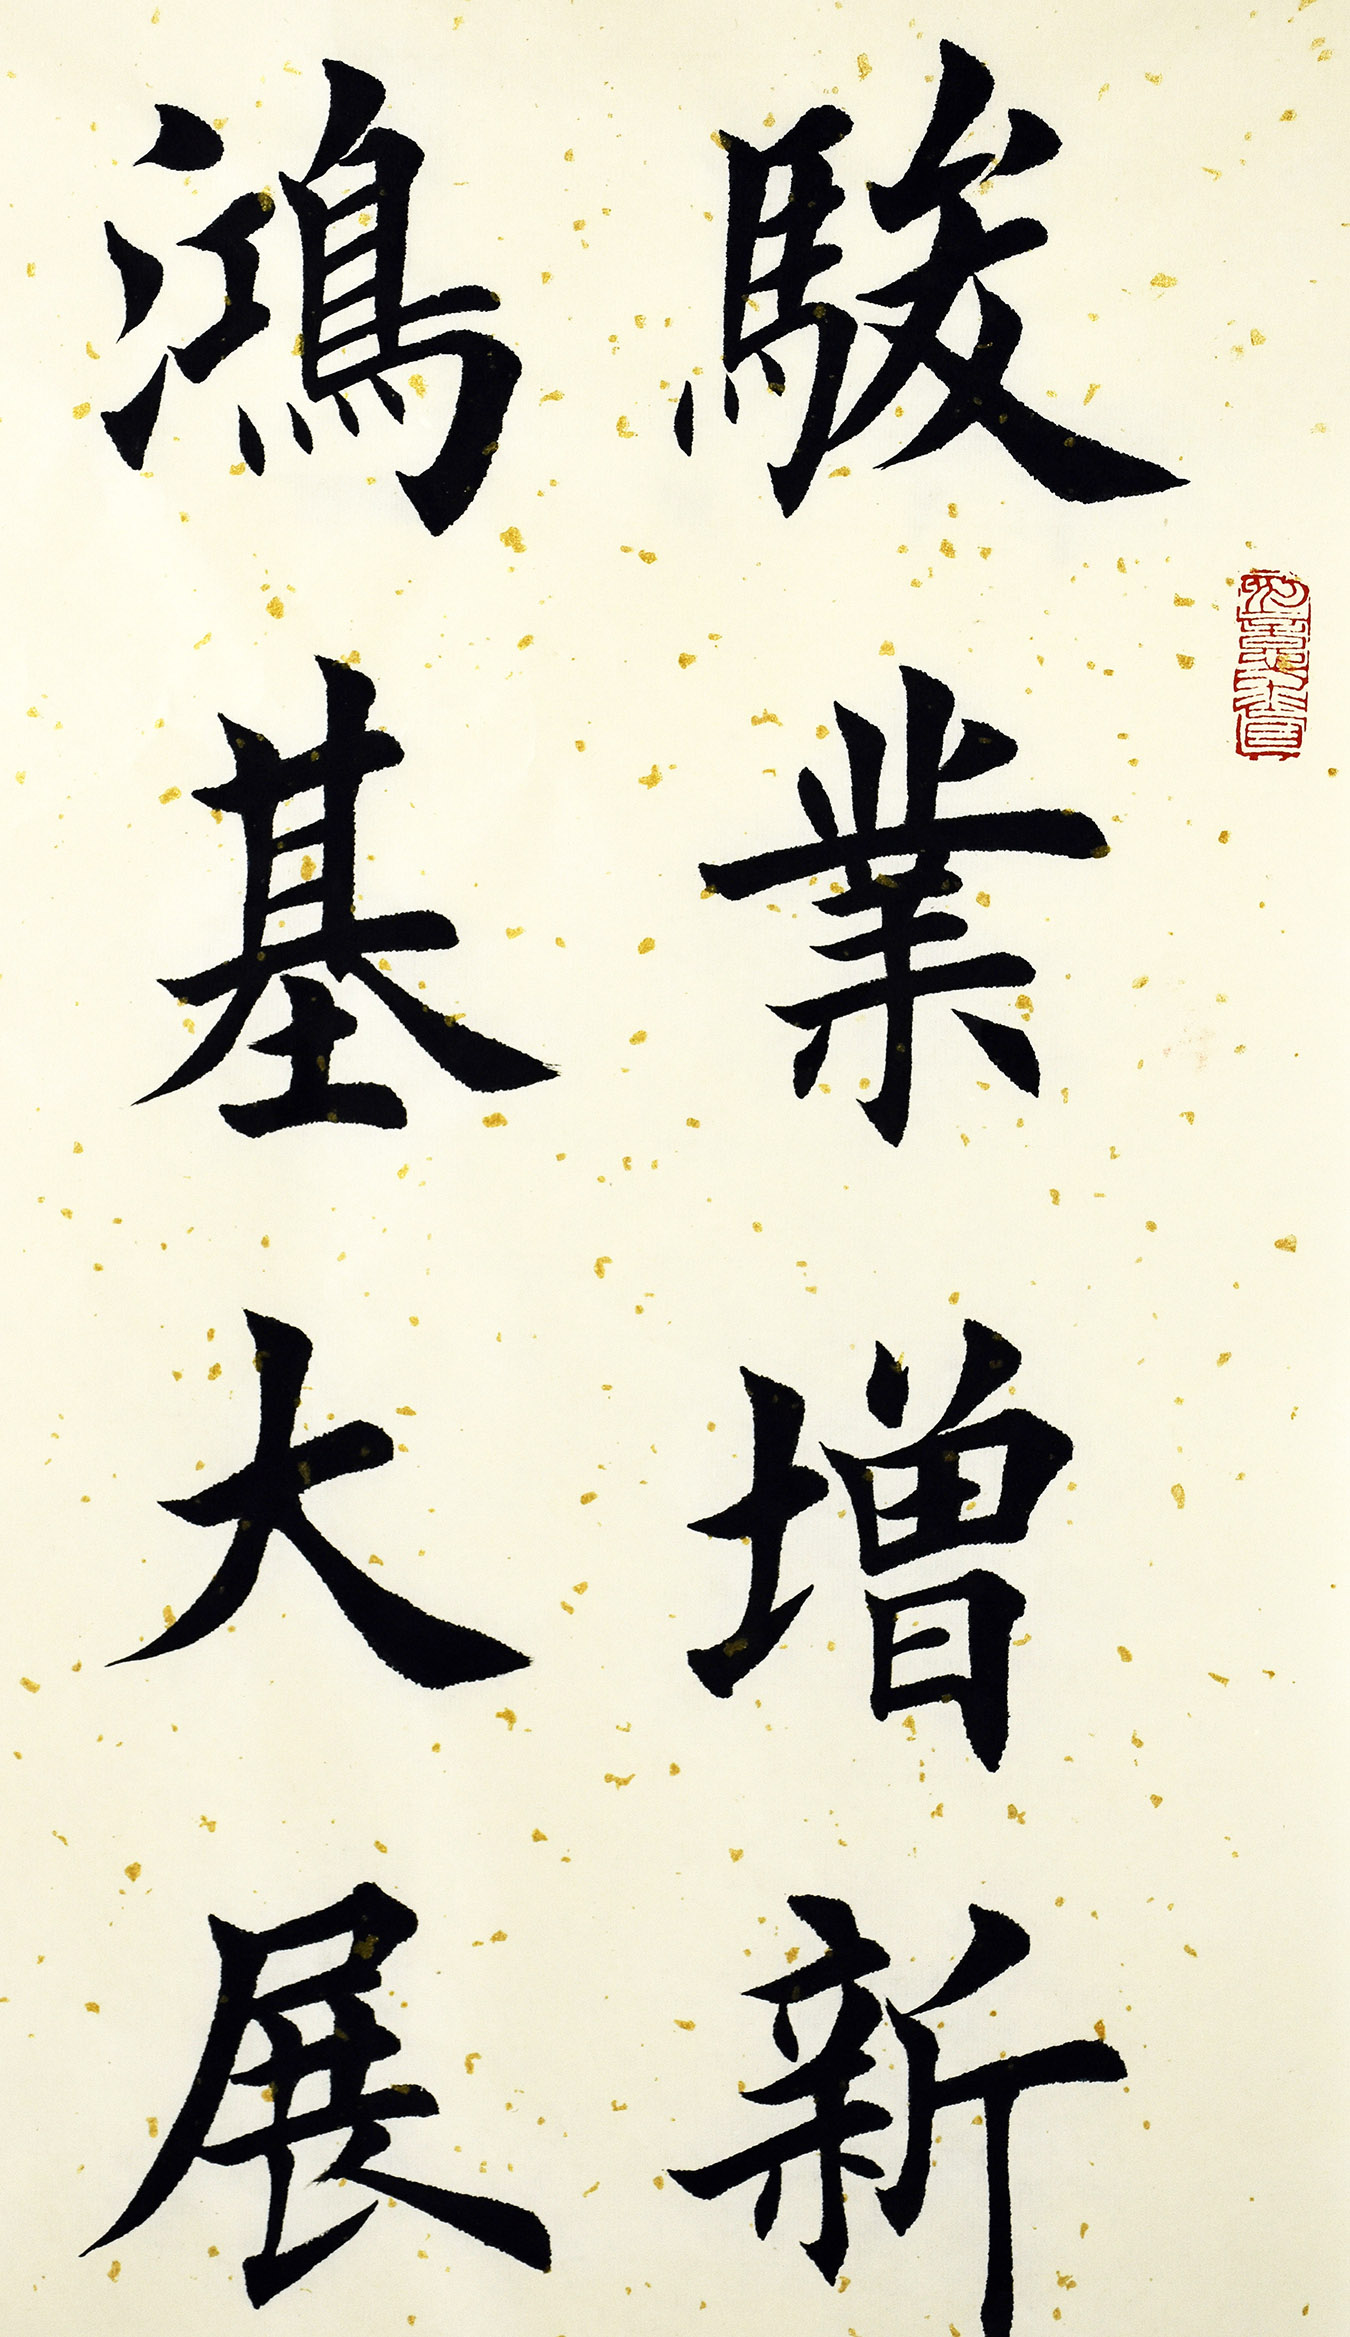 駿業增新
鴻基大展